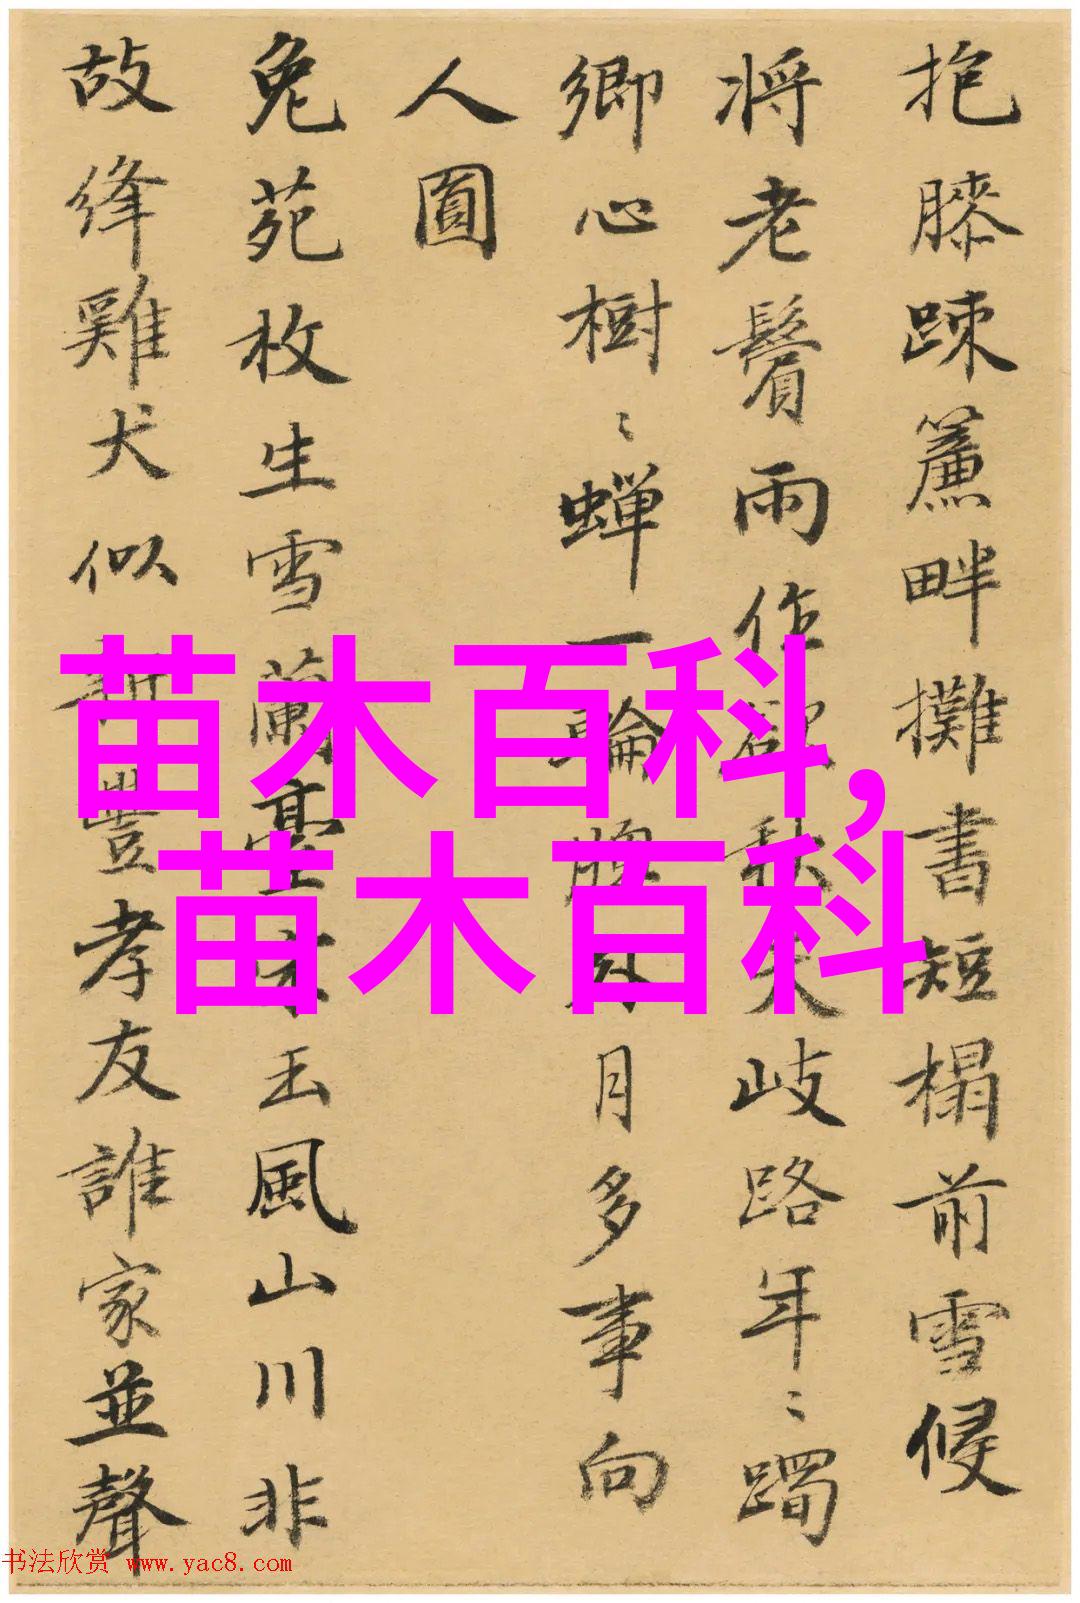 抱膝踈簾畔攤書短榻前雪候
将老鬢雨作欲秋天歧路年〻躅
鄉心樹〻蟬一輪牕外月多事向
人圓
兔苑枚生雪蘭臺宋玉風山川非
故絳雞犬似新豐孝友誰家並聲
苗木百科,
苗木百科
书法欣赏 www.yac8.com